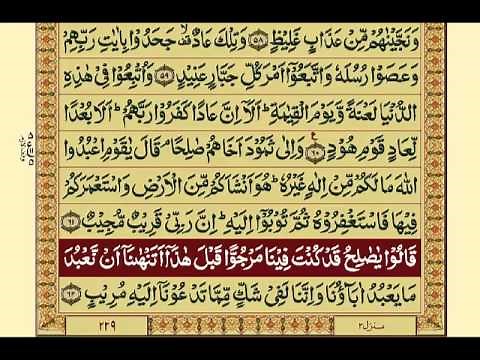 وَنَجَّيْنٰهُمْ مِّنْ عَذَابٍ غَلِيْظٍ ۝۵۸ وَتِلْكَ عَادٌ ۙ جَحَدُوْا بِاٰيٰتِ رَبِّهِمْ
وَعَصَوْا رُسُلَهٗ وَاتَّبَعُوْۤا اَمْرَ كُلِّ جَبَّارٍ عَنِيْدٍ ۝۵۹ وَاُتْبِعُوْا فِيْ هٰذِهِ
الدُّنْيَا لَعْنَةً وَّيَوْمَ الْقِيٰمَةِ ؕ اَلَاۤ اِنَّ عَادًا كَفَرُوْا رَبَّهُمْ ؕ اَلَا بُعْدًا
لِّعَادٍ قَوْمِ هُوْدٍ ۝۶۰ ع وَاِلٰى ثَمُوْدَ اَخَاهُمْ صٰلِحًا ۘ قَالَ يٰقَوْمِ اعْبُدُوا
اللّٰهَ مَا لَكُمْ مِّنْ اِلٰهٍ غَيْرُهٗ ؕ هُوَ اَنْشَاَكُمْ مِّنَ الْاَرْضِ وَاسْتَعْمَرَكُمْ
فِيْهَا فَاسْتَغْفِرُوْهُ ثُمَّ تُوْبُوْۤا اِلَيْهِ ؕ اِنَّ رَبِّيْ قَرِيْبٌ مُّجِيْبٌ ۝۶۱
قَالُوْا يٰصٰلِحُ قَدْ كُنْتَ فِيْنَا مَرْجُوًّا قَبْلَ هٰذَاۤ اَتَنْهٰىنَاۤ اَنْ نَّعْبُدَ
مَا يَعْبُدُ اٰبَآؤُنَا وَاِنَّنَا لَفِيْ شَكٍّ مِّمَّا تَدْعُوْنَاۤ اِلَيْهِ مُرِيْبٍ ۝۶۲
منزل ۳
۲۲۹